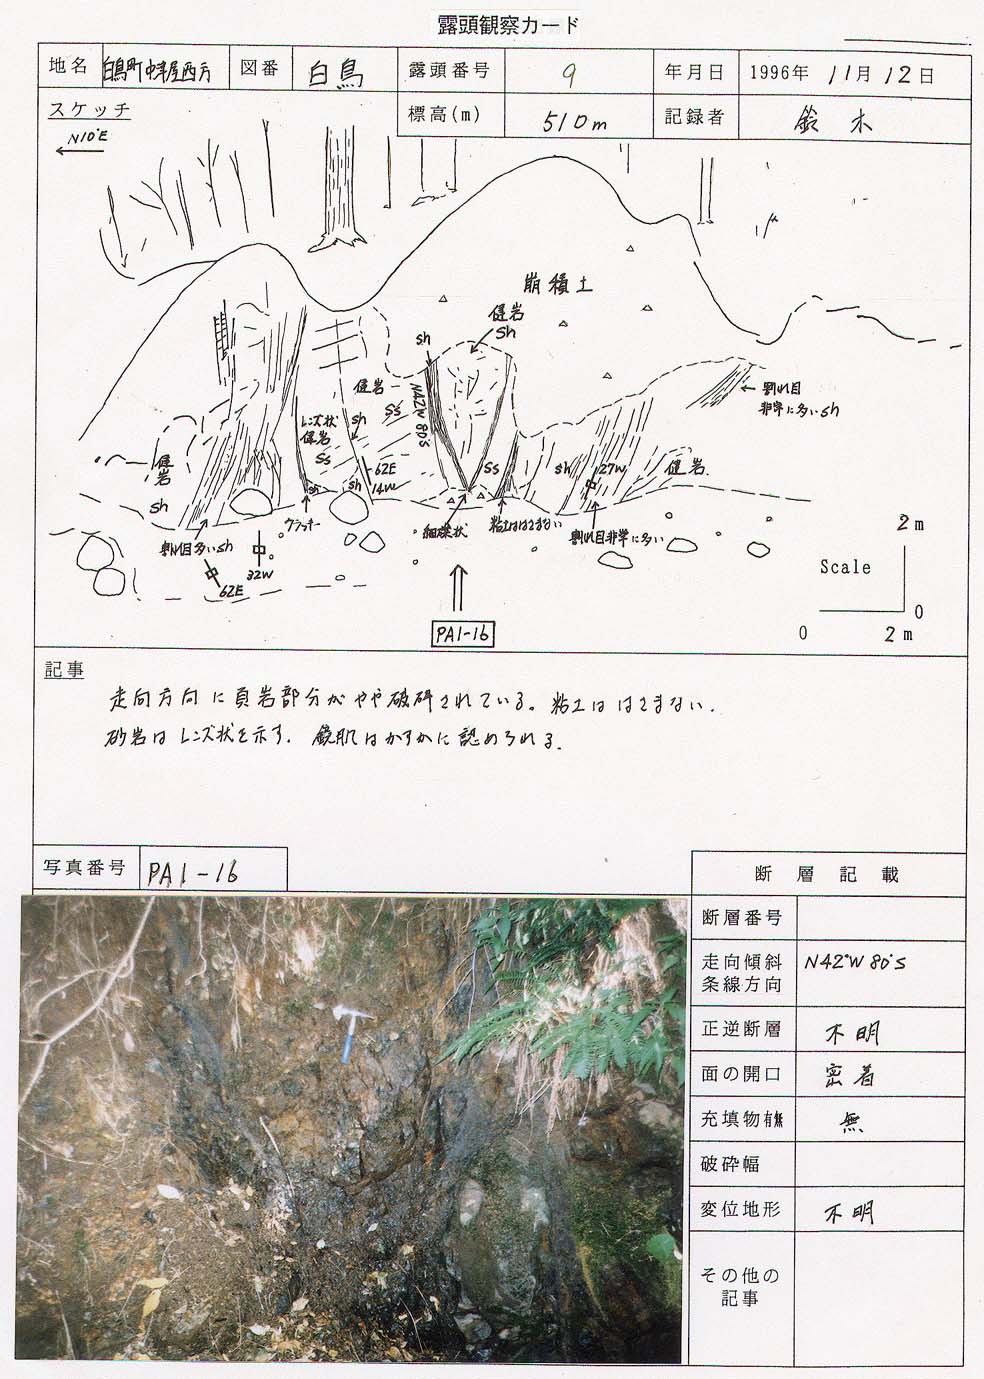 露頭観察カード
地名 白鳥町中津屋西方 図番 白鳥 露頭番号 9 年月日 1996年 11月 12日
標高(m) 510m 記録者 鈴木
スケッチ
N10°E
崩積土
健岩
sh
sh
健岩
N42W 80S
割れ目
非常に多いsh
レンズ状
健岩
ss
sh
ss
健岩
sh
sh
sh
62E
14W
ss
sh
27W
健岩
クラッキー
細礫状
粘土ははさまない
割れ目非常に多い
割れ目多いsh
32W
62E
2m
Scale
0
0 2m
PA1-16
記事
走向方向に頁岩部分がやや破砕されている。粘土ははさまない.
砂岩はレンズ状を示す. 鏡肌はかすかに認められる.
写真番号 PA1-16
断層記載
断層番号
走向傾斜
条線方向 N42°W 80°S
正逆断層 不明
面の開口 密着
充填物有無 無
破砕幅
変位地形 不明
その他の
記事